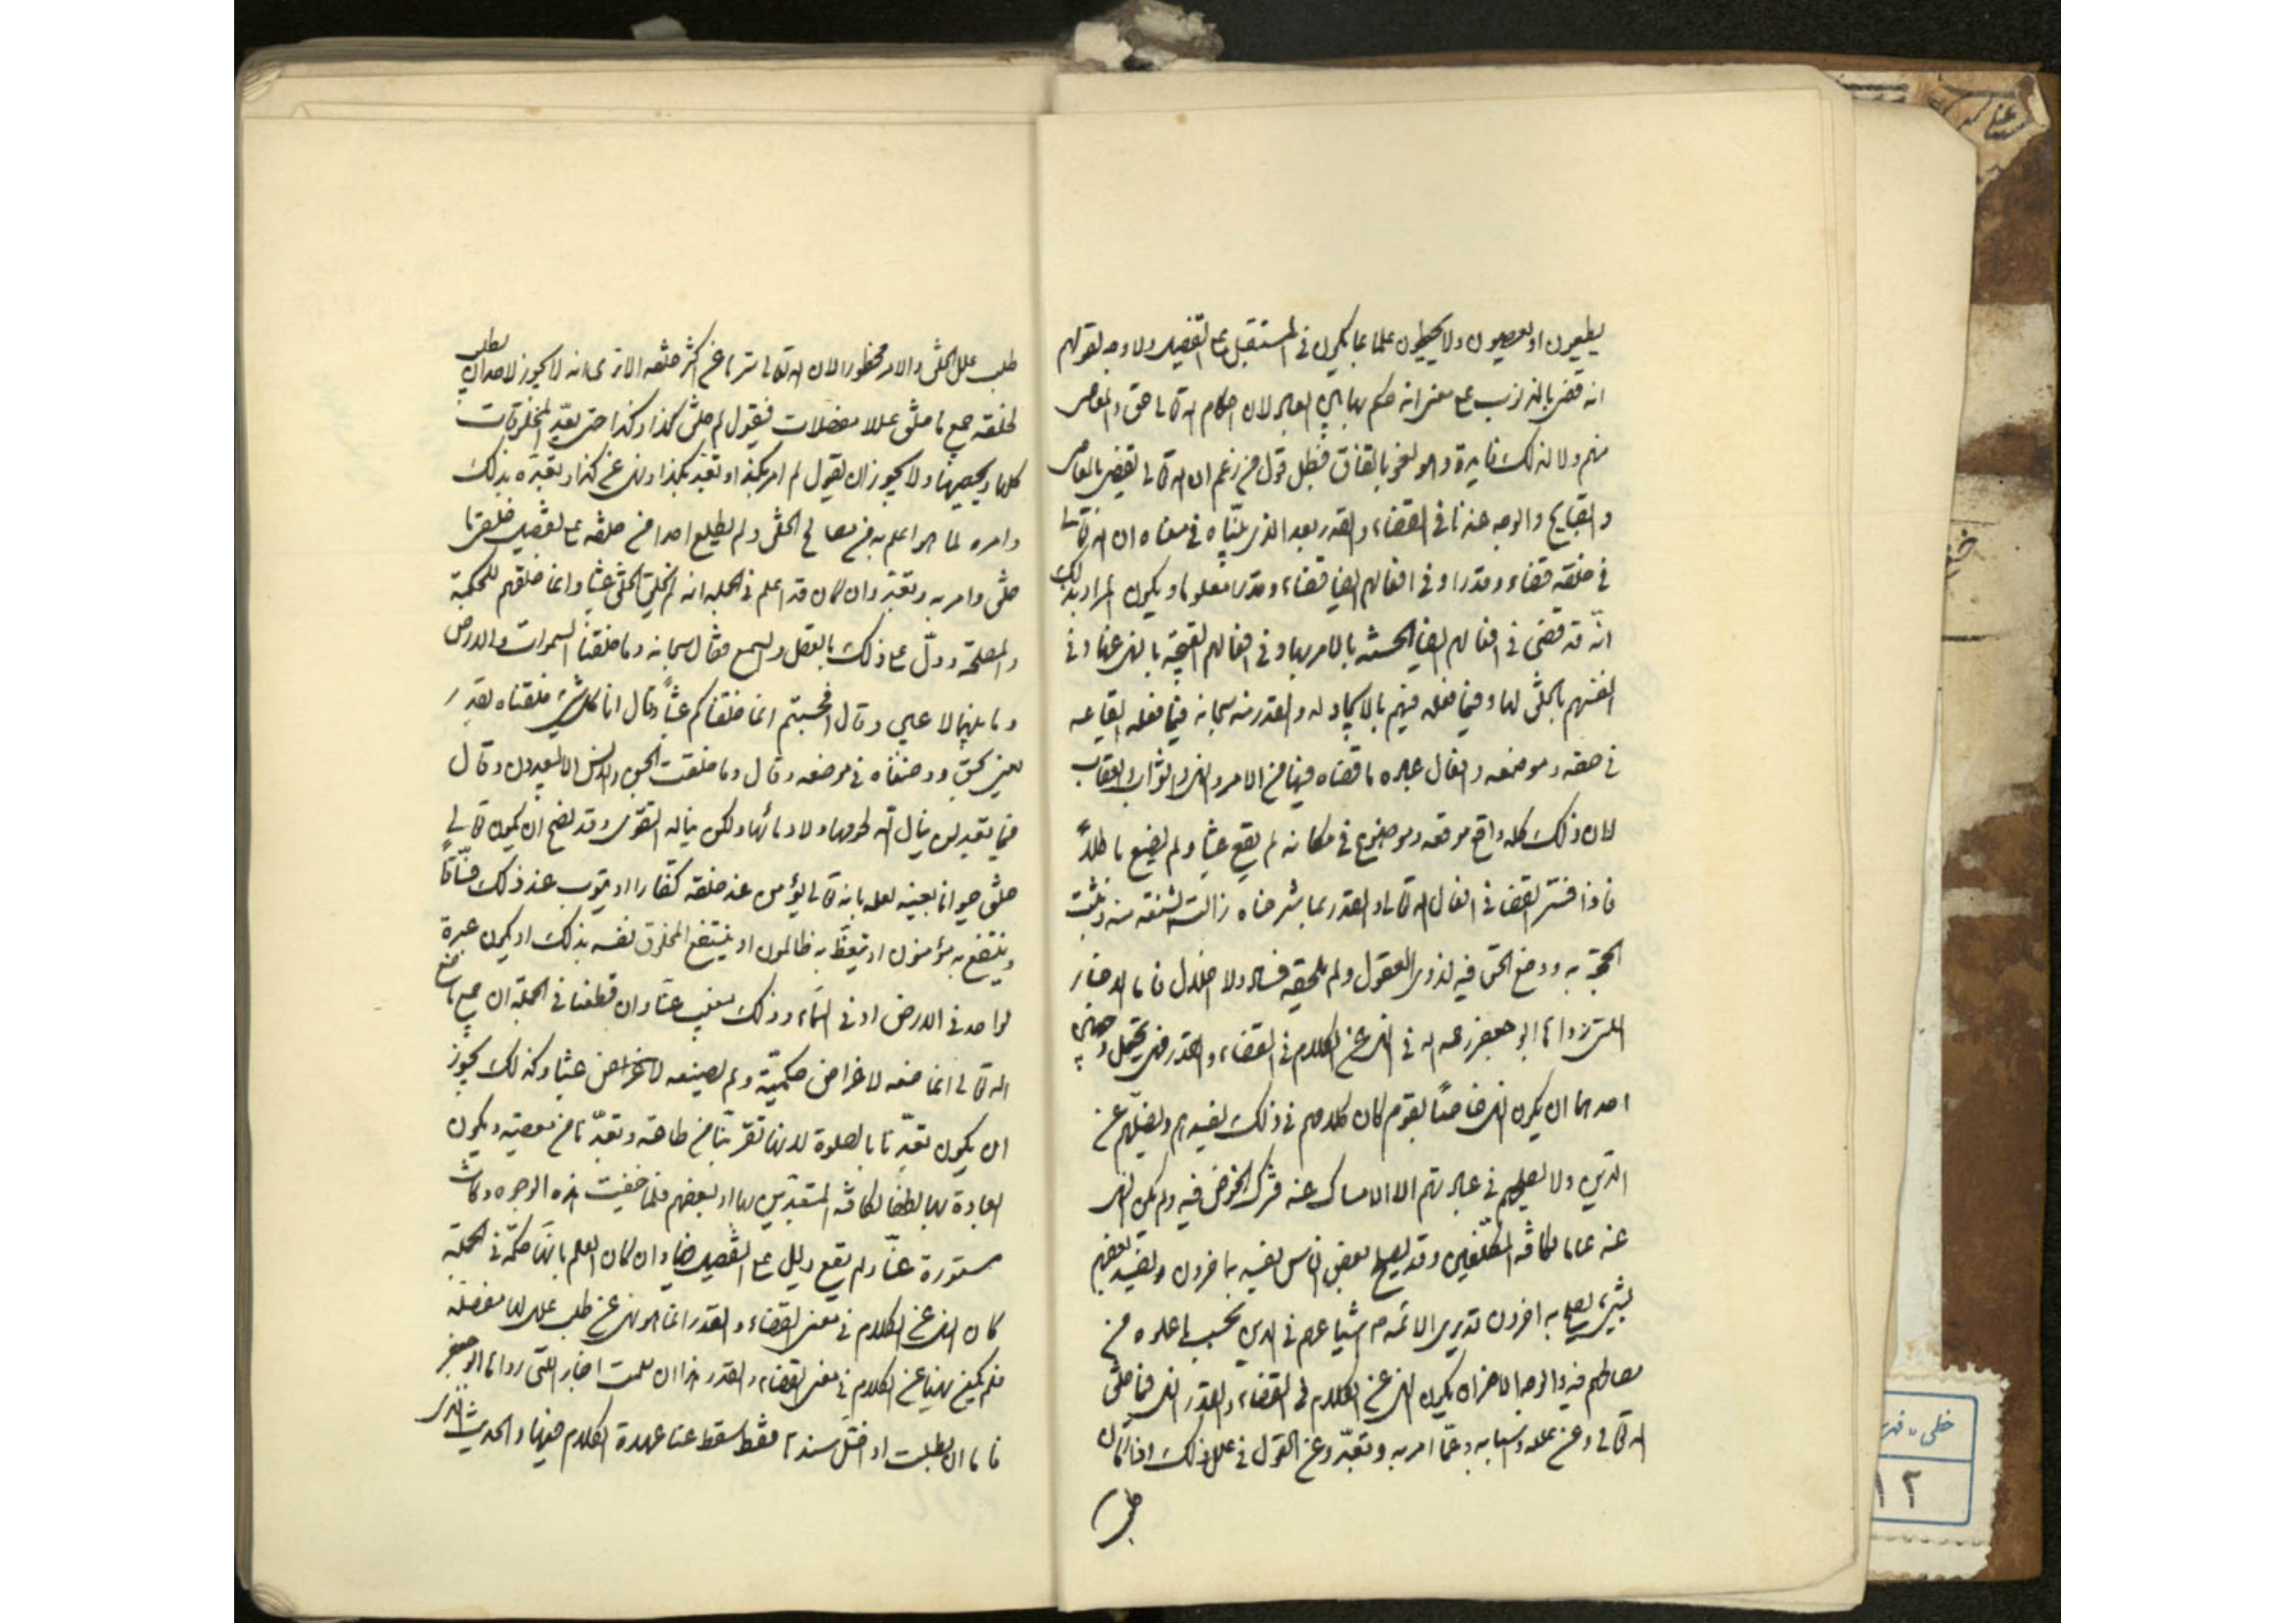 يطيعون او يعصون ولا يحيطون علما بما يكون في المستقبل على التفصيل ولا وجه لقولهم
انه قضى بالذنوب على معنى انه حكم بها بين العباد لان احكام الله تعالى حق والمعاصي
منهم ولا لذلك فايدة وهو لغو بالاتفاق فبطل قول من زعم ان الله تعالى يقضي بالمعاصي
والقبايح والوجه عندنا في القضاء والقدر بعد الذي بيّناه في معناه ان الله تعالى
في خلقه قضاء وقدرا وفي افعالهم ايضا قضاء وقدرا معلوما ويكون المراد بذلك
انّه قد قضى في افعالهم ايضا الحسنة بالامر بها وفي افعالهم القبيحة بالنهي عنها وفي
انفسهم بالخلق لها وفيما فعله فيهم بالايجاد له والقدر منه سبحانه فيما فعله ايقاعه
في حقه وموضعه وافعال عباده ما قضاه فيها من الامر والنهي والثواب والعقاب
لان ذلك كله واقع موقعه وموضوع في مكانه لم يقع عبثا ولم يضيع باطلاً
فاذا فسّر القضا في افعال الله تعالى والقدر بما شرحناه زالت الشنعة منه وثبتت
الحجّة به ووضح الحق فيه لذوي العقول ولم يلحقه فساد ولا اخلال فاما الاخبار
اللتى رواها ابو جعفر رحمه الله في النهي عن الكلام في القضاء والقدر فهي تحتمل وجهين
احدهما ان يكون النهي خاصّا بقوم كان كلامهم في ذلك يفسدهم ويضلّهم عن
الدين ولا يصلحهم في عبادتهم الا الامساك عنه وترك الخوض فيه ولم يكن النهي
عنه عاما لكافّة المكلّفين وقد يصلح بعض الناس بشيء يفسد به اخرون ويفسد بعضهم
بشيء يصلح به اخرون فدبر الائمة م اشياعهم في الدين بحسب ما علموه من
مصالحهم فيه والوجه الاخر ان يكون النهي عن الكلام في القضاء والقدر النهي فيما خلق
الله تعالى وعن علله واسبابه وعمّا امر به وتعبّد وعن القول في علل ذلك اذا كان
طلب
طلب علل الخلق والامر محظورا لان الله تعالى سترها عن اكثر خلقه الا ترى انه لا يجوز لاحد ان يطلب
لخلقه جميع ما خلق عللا مفصلات فيقول لم خلق كذا وكذا حتى يعدّ المخلوقات
كلها ويحصيها ولا يجوز ان يقول لم امر بكذا وتعبد بكذا ونهى عن كذا وتعبّده بذلك
وامره لما هو اعلم به من مصالح الخلق ولم يطلع احدا من خلقه على تفصيل ما
خلق وامر به وتعبّد وان كان قد اعلم في الجملة انه لم يخلق الخلق عبثا وانما خلقهم للحكمة
والمصلحة ودلّ على ذلك بالعقل والسمع فقال سبحانه وما خلقنا السموات والارض
وما بينهما لاعبين وقال افحسبتم انما خلقناكم عبثاً وقال انا كل شيء خلقناه بقدر
يعني بحق ووضعناه في موضعه وقال وما خلقت الجن والانس الا ليعبدون وقال
فيما تعبد لن ينال الله لحومها ولا دمائها ولكن يناله التقوى وقد يصحّ ان يكون تعالى
خلق حيوانا بعينه لعلمه بانه تعالى يؤمن عند خلقه كفار او يتوب عند ذلك فسّاق
او ينتفع به مؤمنون او يتّعظ به ظالمون او ينتفع المخلوق نفسه بذلك او يكون عبرة
لواحد في الارض او في السماء وذلك مغيب عنّا وان قطعنا في الجملة ان جميع ما صنع
الله تعالى انما صنعه لاغراض حكميّة ولم يصنعه لاغراض عبثا وكذلك يجوز
ان يكون تعبّدنا بالصلوة لانها تقرّبنا من طاعته وتبعّدنا من معصيته ويكون
العبادة بها لطفا لكافّة المتعبّدين بها او لبعضهم فلما خفيت هذه الوجوه وكانت
مستورة عنّا ولم يقع دليل على التفصيل فيها وان كان العلم بانّها حكمة في الجملة
كان النهي عن الكلام في معنى القضاء والقدر انما هو نهي عن طلب علل لها مفصلة
فلم يكن نهيا عن الكلام في معنى القضاء والقدر هذا ان سلمت اخبار اللتى رواها ابو جعفر
فاما ان بطلت او اختلّ سندها فقط سقط عنا عهدة الكلام فيها والحديث الذي